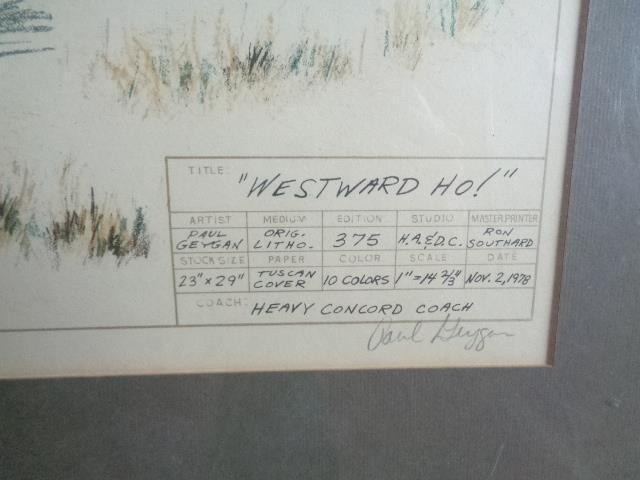 TITLE: "WESTWARD HO!"
ARTIST MEDIUM EDITION STUDIO MASTER PRINTER
PAUL GEYGAN ORIG. LITHO. 375 H.A.&D.C. RON SOUTHARD
STOCK SIZE PAPER COLOR SCALE DATE
23" x 29" TUSCAN COVER 10 COLORS 1"=14 2/3" NOV. 2, 1978
COACH: HEAVY CONCORD COACH
Paul Geygan